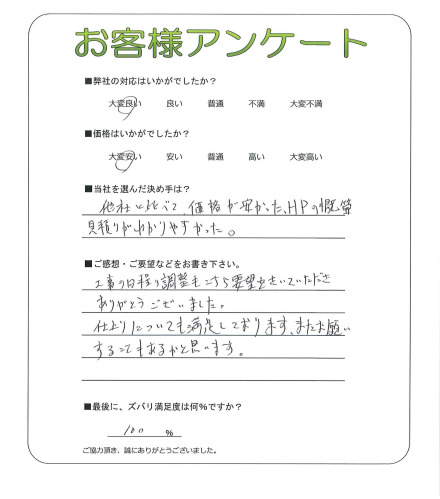 お客様アンケート
■弊社の対応はいかがでしたか？
大変良い 良い 普通 不満 大変不満
■価格はいかがでしたか？
大変安い 安い 普通 高い 大変高い
■当社を選んだ決め手は？
他社に比べて、価格が安かった、HPの概算
見積りがわかりやすかった。
■ご感想・ご要望などをお書き下さい。
工事の日程り調整もこちら要望をきいていただき
ありがとうございました。
仕上りについても満足しております、またお願い
することもあるかと思います。
■最後に、ズバリ満足度は何％ですか？
100 ％
ご協力頂き、誠にありがとうございました。